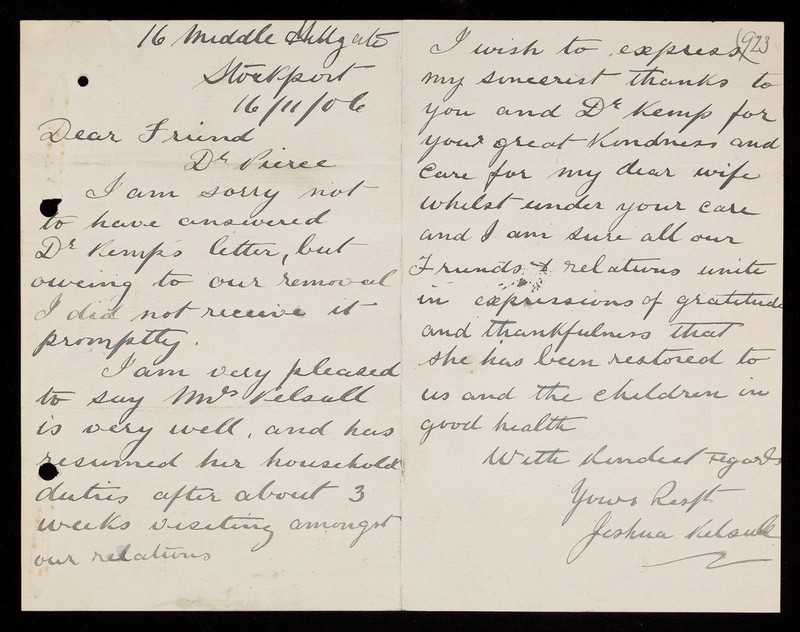 16 Middle Hillgate
Stockport
16/11/06
Dear Friend
Dr Pierce
I am sorry not
to have answered
Dr Kemp's letter, but
oweing to our removal
I did not receive it
promptly.
I am very pleased
to say Mrs Kelsall
is very well, and has
resumed her household
duties after about 3
weeks visiting amongst
our relations
923
I wish to express
my sincerist thanks to
you and Dr Kemp for
your great kindness and
care for my dear wife
whilst under your care
and I am sure all our
Friends & relations unite
in expressions of gratitude
and thankfulness that
she has been restored to
us and the children in
good health
With kindest regards
Yours Resft
Joshua Kelsall